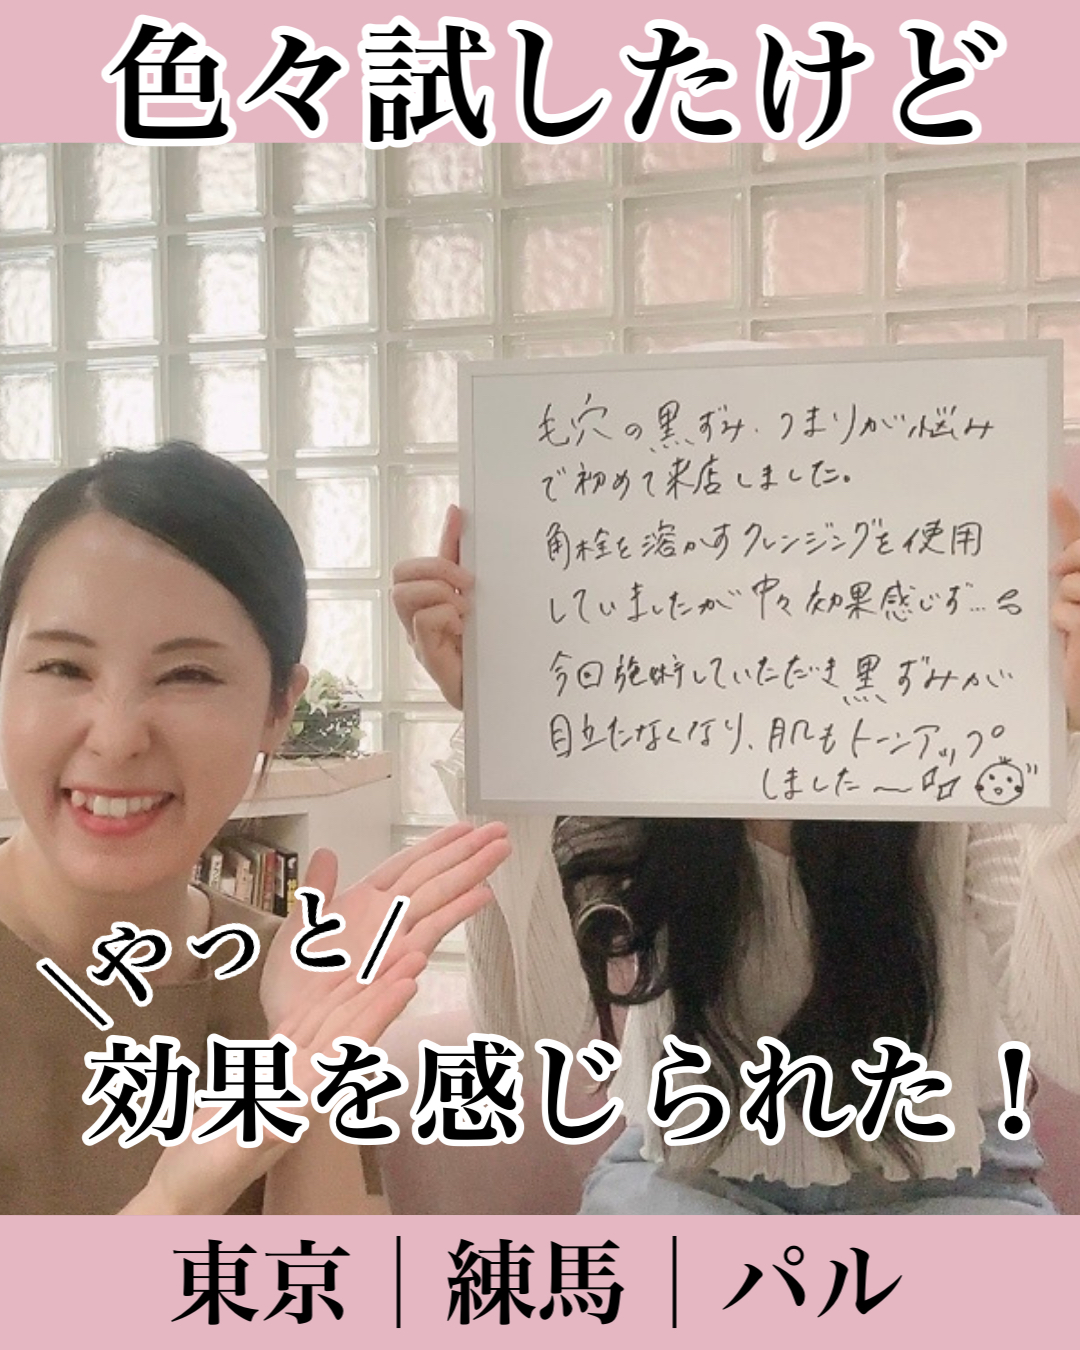 色々試したけど
毛穴の黒ずみ、つまりが悩み
で初めて来店しました。
角栓を溶かすクレンジングを使用
していましたが中々効果感じず…
今回施術していただき黒ずみが
目立たなくなり、肌もトーンアップ
しました〜
\やっと/
効果を感じられた！
東京｜練馬｜パル